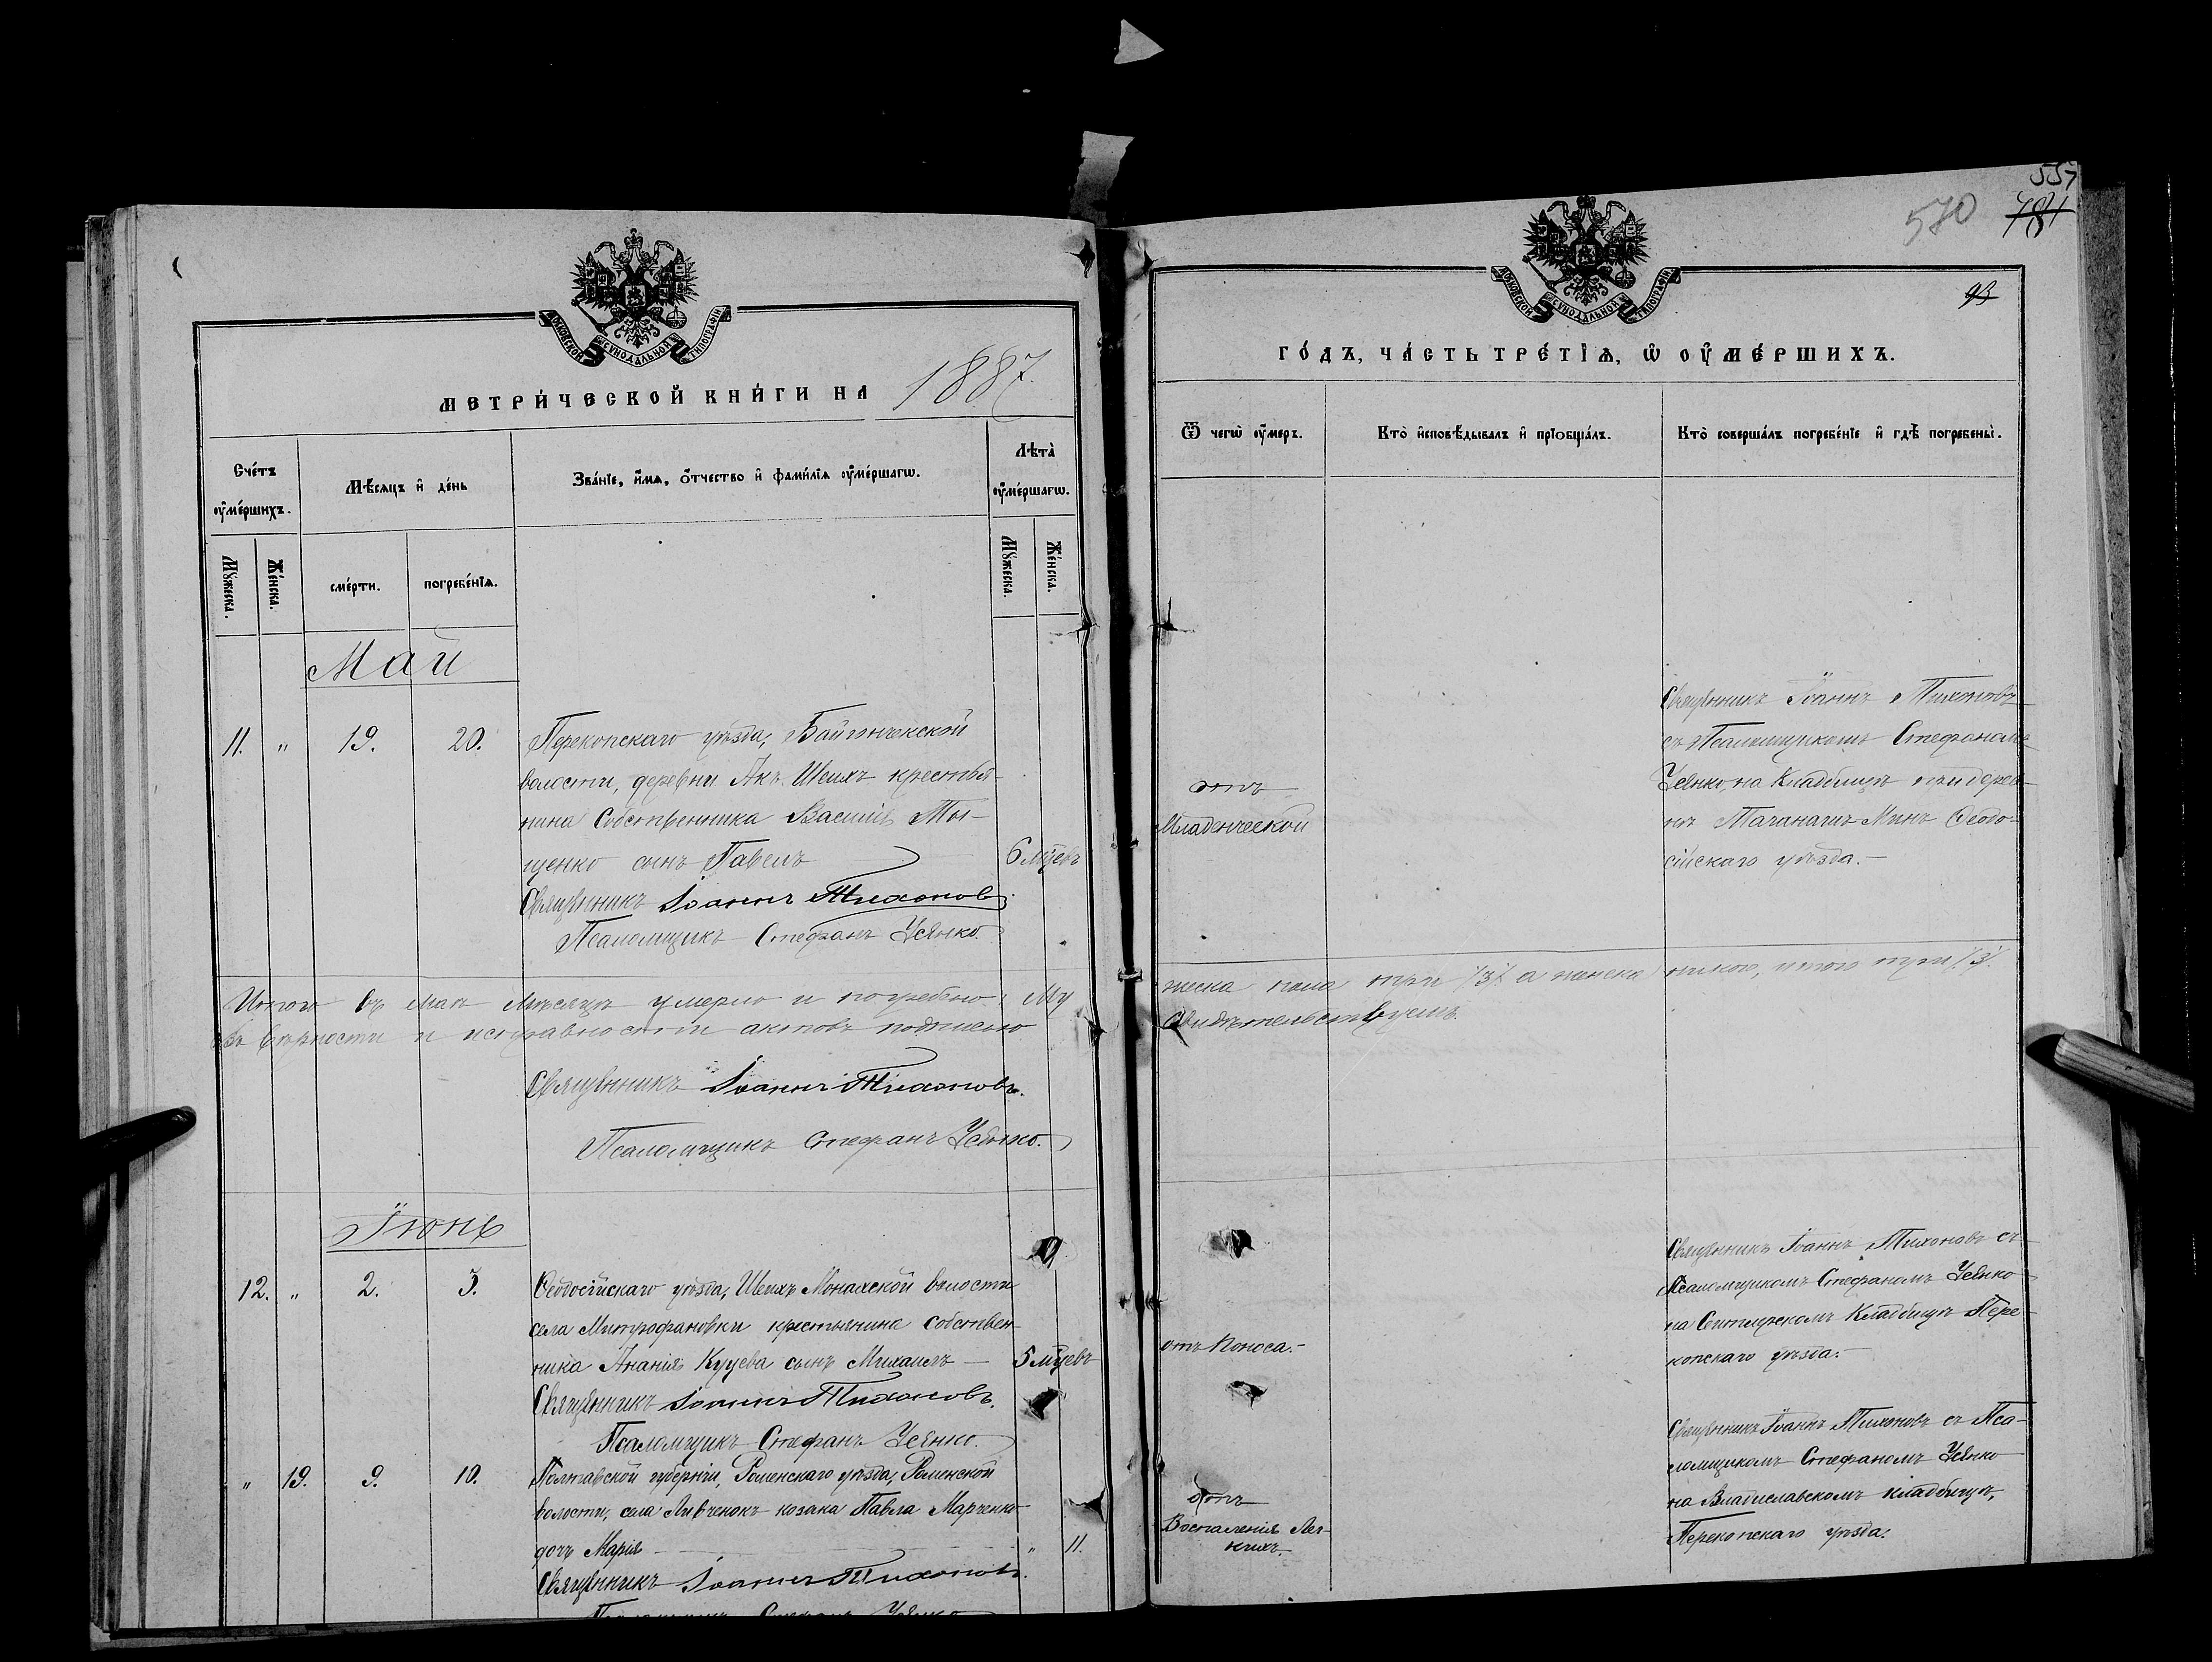 МОСКОВСКОЙ СѴНОДАЛЬНОЙ ТИПОГРАФІИ
МЕТРИ́ЧЕСКОЙ КНИ́ГИ НА 1887.
Сче́тъ ᲂу҆ме́ршихъ.
Мѣ́сяцъ и҆ де́нь
Зва́нїе, и҆́мѧ, ѻ҆́тчество и҆ фами́лїѧ ᲂу҆ме́ршагѡ.
Лѣта̀ ᲂу҆ме́ршагѡ.
Мꙋ́жеска.
Же́нска.
сме́рти.
погребе́нїѧ.
Мꙋ́жеска.
Же́нска.
Май
11. " 19. 20. Перекопскаго уѣзда, Байгончекской
волости, деревни Акъ Шеихъ крестья-
нина Собственника Василія Ты-
щенко сынъ Павелъ 6 мцевъ
Священникъ Іоаннъ Тихоновъ
Псаломщикъ Стефанъ Усенко.
Итого въ маѣ мѣсяцѣ умерло и погребено: Му
Въ вѣрности и исправности актовъ подписью
Священникъ Іоаннъ Тихоновъ.
Псаломщикъ Стефанъ Усенко.
Іюнь
12. " 2. 3. Ѳеодосійскаго уѣзда, Шеихъ Монахской волости
села Митрофановки крестьянина собствен-
ника Ананія Куцева сынъ Михаилъ — 5 мцевъ
Священникъ Іоаннъ Тихоновъ.
Псаломщикъ Стефанъ Усенко.
" 19. 9. 10. Полтавской губерніи, Роменскаго уѣзда, Роменской
волости, села Ливченокъ козака Павла Марченко
дочь Марія " 11.
Священникъ Іоаннъ Тихоновъ.
Псаломщикъ Стефанъ Усенко
557
570 781
93
МОСКОВСКОЙ СѴНОДАЛЬНОЙ ТИПОГРАФІИ
ГО́ДЪ, ЧА́СТЬ ТРЕ́ТЇѦ, Ѡ҆ ОУ҆МЕ́РШИХЪ.
Ѿ чегѡ̀ ᲂу҆́меръ.
Кто̀ и҆сповѣ́дывалъ и҆ прїобща́лъ.
Кто̀ соверша́лъ погребе́нїе и҆ гдѣ̀ погребены̀.
отъ
Младенческой
Священникъ Іоаннъ Тихоновъ
съ Псаломщикомъ Стефаномъ
Усенко, на Кладбищѣ при дерев-
нѣ Таганашъ Минъ Ѳеодо-
сійскаго уѣзда.—
жеска пола три /3/ а женска никого, итого три /3/.
свидѣтельствуемъ.
отъ Поноса.—
Священникъ Іоаннъ Тихоновъ съ
Псаломщикомъ Стефаномъ Усенко
на Кладбищѣ Пере-
копскаго уѣзда.—
отъ
Воспаленія Лег-
кихъ.
Священникъ Іоаннъ Тихоновъ съ Пса-
ломщикомъ Стефаномъ Усенко
на Владиславскомъ кладбищѣ,
Перекопскаго уѣзда.